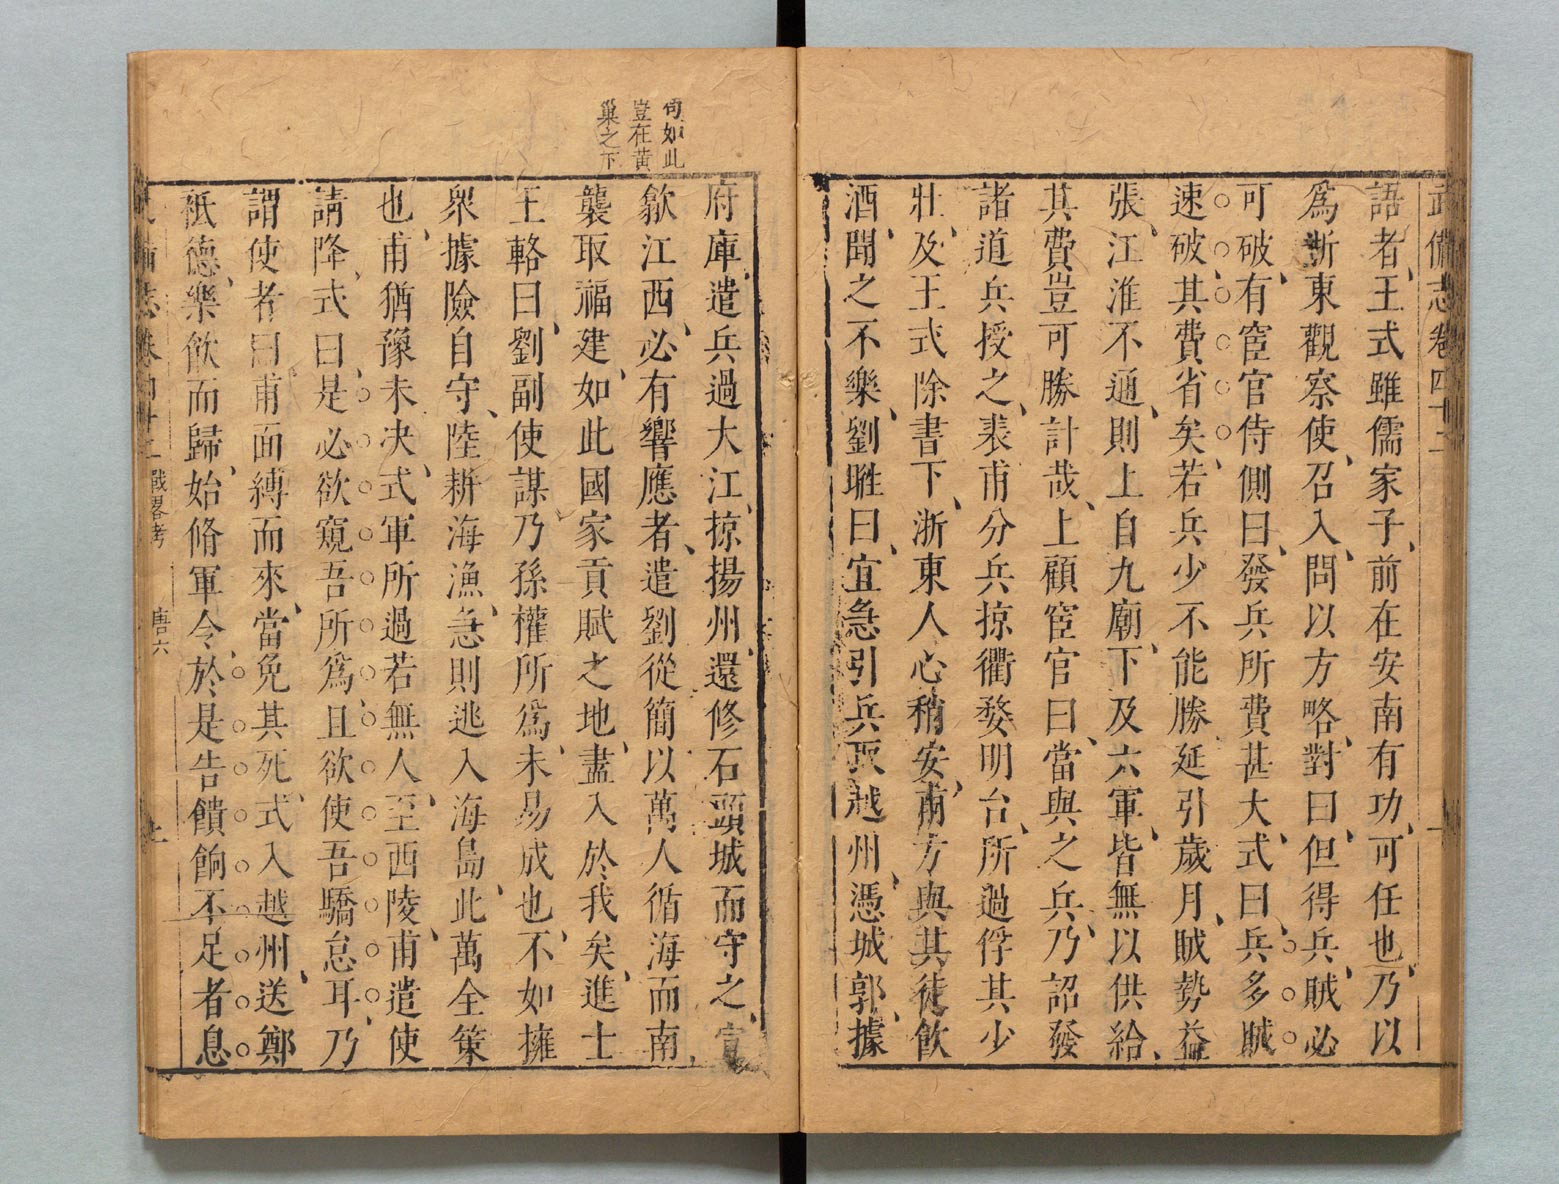 武備志卷四十二
語者王式雖儒家子前在安南有功可任也乃以
爲浙東觀察使召入問以方略對曰但得兵賊必
可破有宦官侍側曰發兵所費甚大式曰兵多賊
速破其費省矣若兵少不能勝延引歲月賊勢益
張江淮不通則上自九廟下及六軍皆無以供給
其費豈可勝計哉上顧宦官曰當與之兵乃詔發
諸道兵授之裘甫分兵掠衢婺明台所過俘其少
壯及王式除書下浙東人心稍安甫方與其徒飲
酒聞之不樂劉暀曰宜急引兵取越州憑城郭據
何如此
豈在黄
巢之下
府庫遣兵過大江掠揚州還修石頭城而守之宣
歙江西必有響應者遣劉從簡以萬人循海而南
襲取福建如此國家貢賦之地盡入於我矣進士
王輅曰劉副使謀乃孫權所爲未易成也不如擁
衆據險自守陸耕海漁急則逃入海島此萬全策
也甫猶豫未决式軍所過若無人至西陵甫遣使
請降式曰是必欲窺吾所爲且欲使吾驕怠耳乃
謂使者曰甫面縛而來當免其死式入越州送鄭
祗德樂飲而歸始脩軍令於是告饋餉不足者息
武備志卷四十二 戰畧考 唐六